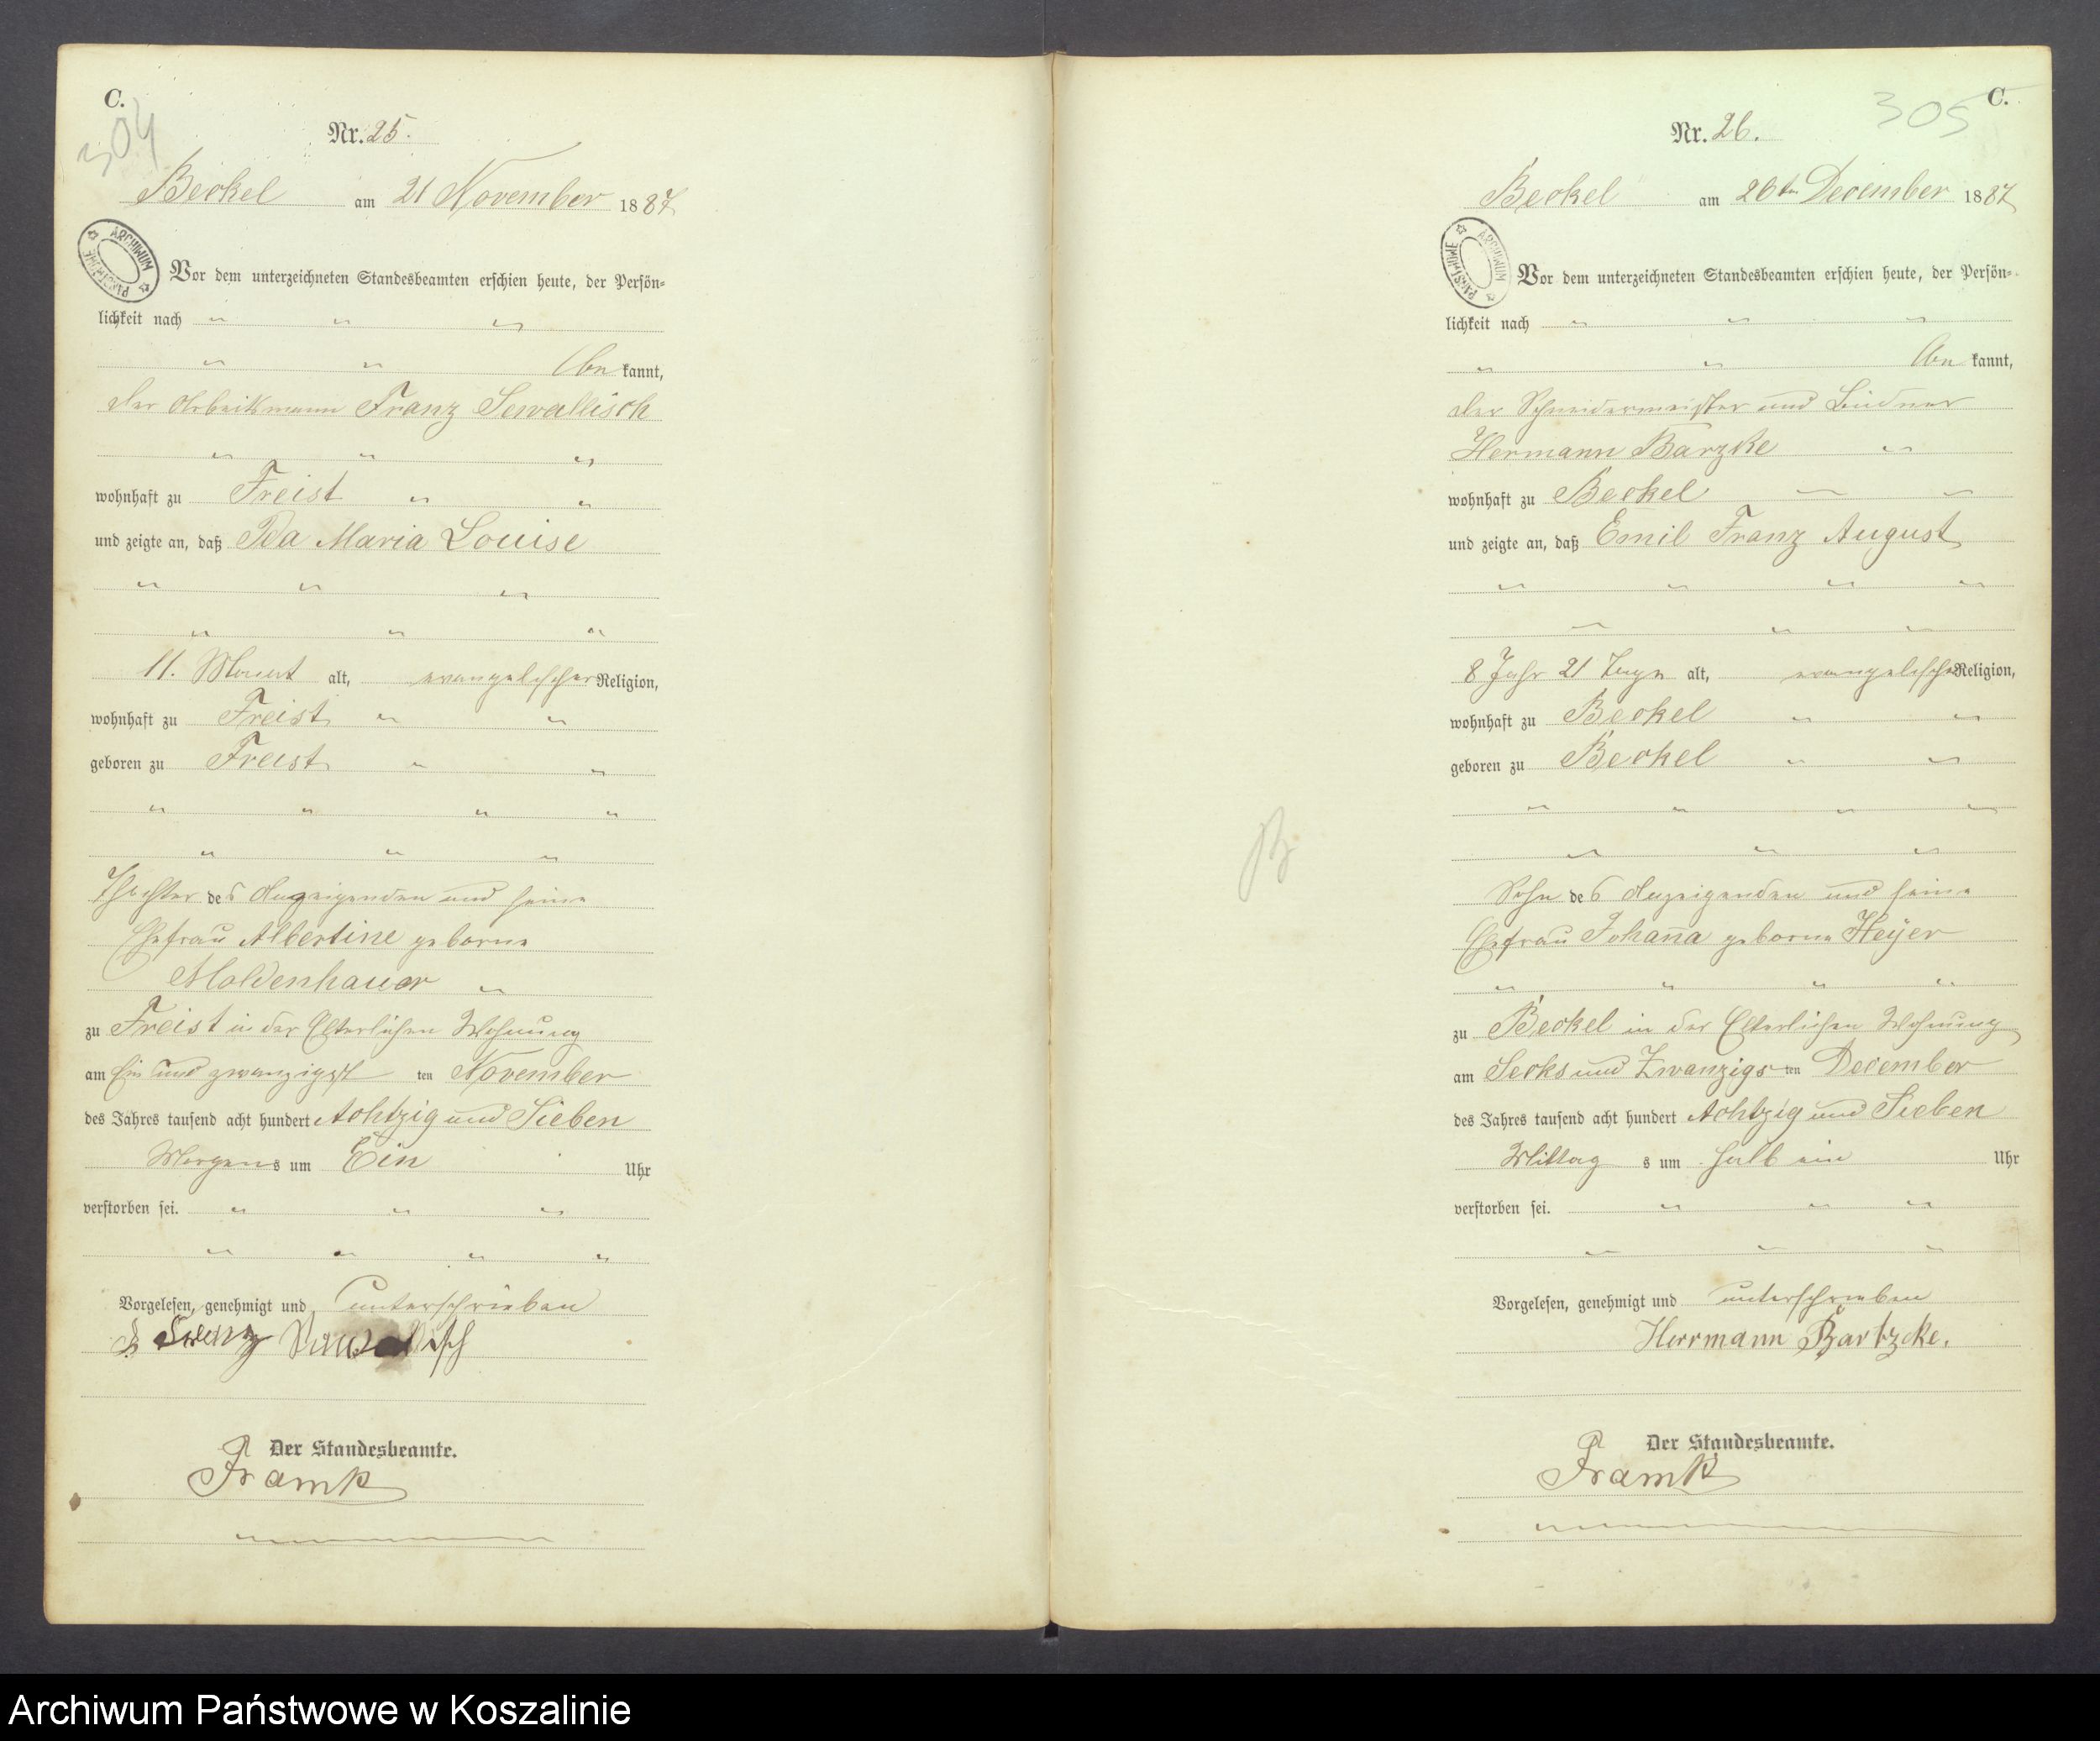 C.
304
Nr. 25.
Beckel am 21 November 1887
ARCHIWUM PAŃSTWOWE
Vor dem unterzeichneten Standesbeamten erschien heute, der Persön=
lichkeit nach " " "
" " bekannt,
der Arbeitsmann Franz Sewallisch
" " "
wohnhaft zu Freist " "
und zeigte an, daß Ida Maria Louise
" " "
" " "
11. Monat alt, evangelischer Religion,
wohnhaft zu Freist " "
geboren zu Freist " "
" " " "
" " "
Thochter des Anzeigenden und seine
Ehefrau Albertine geborne
Moldenhauer "
zu Freist in der Elterlichen Wohnung
am Ein und zwanzigst ten November
des Jahres tausend acht hundert Achtzig und Sieben
Morgens um Ein Uhr
verstorben sei. " " "
" " " "
Vorgelesen, genehmigt und unterschrieben
Franz Sewallisch
Der Standesbeamte.
Framk
C.
305
Nr. 26.
Beckel am 26ten December 1887
ARCHIWUM PAŃSTWOWE
Vor dem unterzeichneten Standesbeamten erschien heute, der Persön=
lichkeit nach " " "
" " bekannt,
der Schneidermeister und Büdner
Hermann Barzke "
wohnhaft zu Beckel " "
und zeigte an, daß Emil Franz August
" " " "
" " "
8 Jahr 21 Tage alt, evangelischer Religion,
wohnhaft zu Beckel " "
geboren zu Beckel " "
" " " "
" " "
Sohn des Anzeigenden und seine
Ehefrau Johan̄a geborne Heyer
" " " "
zu Beckel in der Elterlichen Wohnung
am Secks und Zwanzigs ten December
des Jahres tausend acht hundert Achtzig und Sieben
Mittag s um halb ein Uhr
verstorben sei. " " "
" " "
Vorgelesen, genehmigt und unterschrieben
Herrmann Bartzcke.
Der Standesbeamte.
Framk
Archiwum Państwowe w Koszalinie